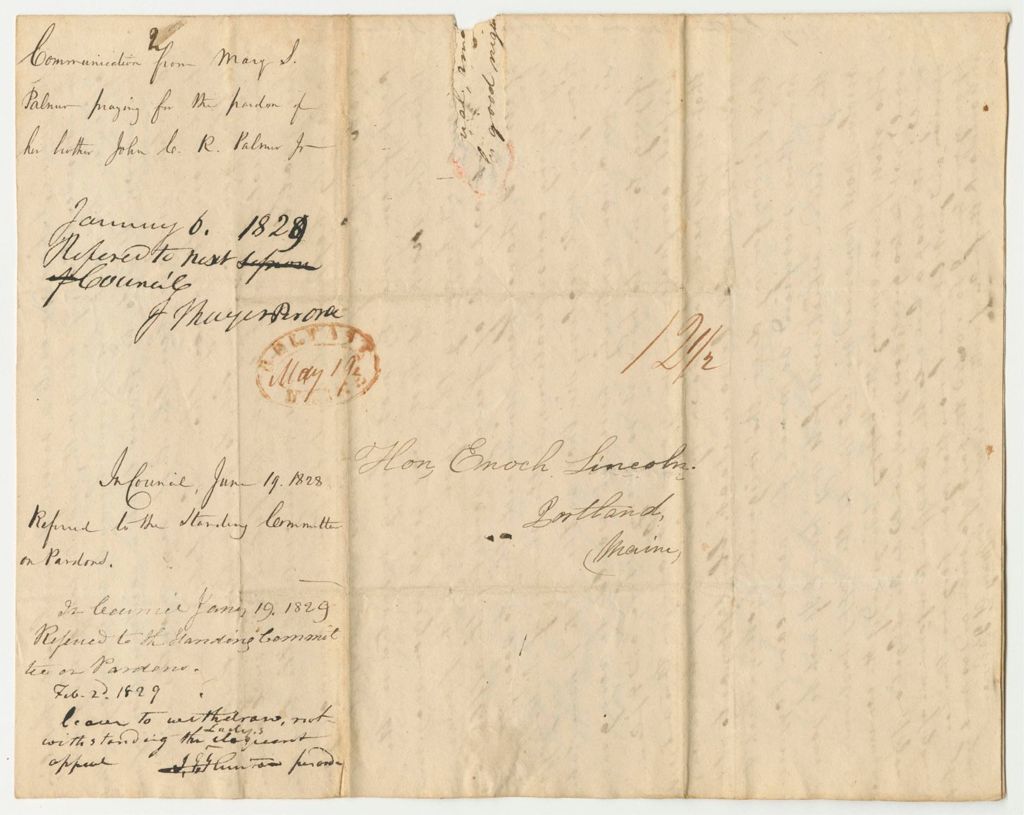 2
Communication from Mary S.
Palmer praying for the pardon of
her brother John C. R. Palmer Jr
January 6. 1829
Refered to next session
of Council
J Thayer
BELFAST
May 19
In Council, June 19. 1828
Referred to the Standing Committee
on Pardons.
In Council Jany 19. 1829
Refered to the Standing Commit
tee on Pardons.
Feb. 2d. 1829
leave to withdraw, not
withstanding the Lady's eloquent
appeal
12 1/2
Hon, Enoch Lincoln.
Portland,
Maine,
good night